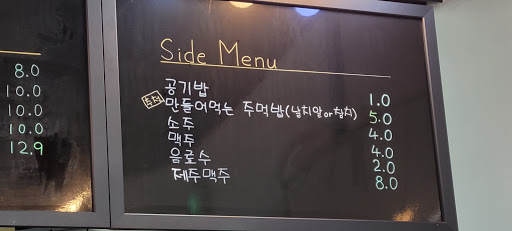 8.0
10.0
10.0
10.0
12.9
Side Menu
공기밥 1.0
추천 만들어먹는 주먹밥(날치알or참치) 5.0
소주 4.0
맥주 4.0
음료수 2.0
제주맥주 8.0